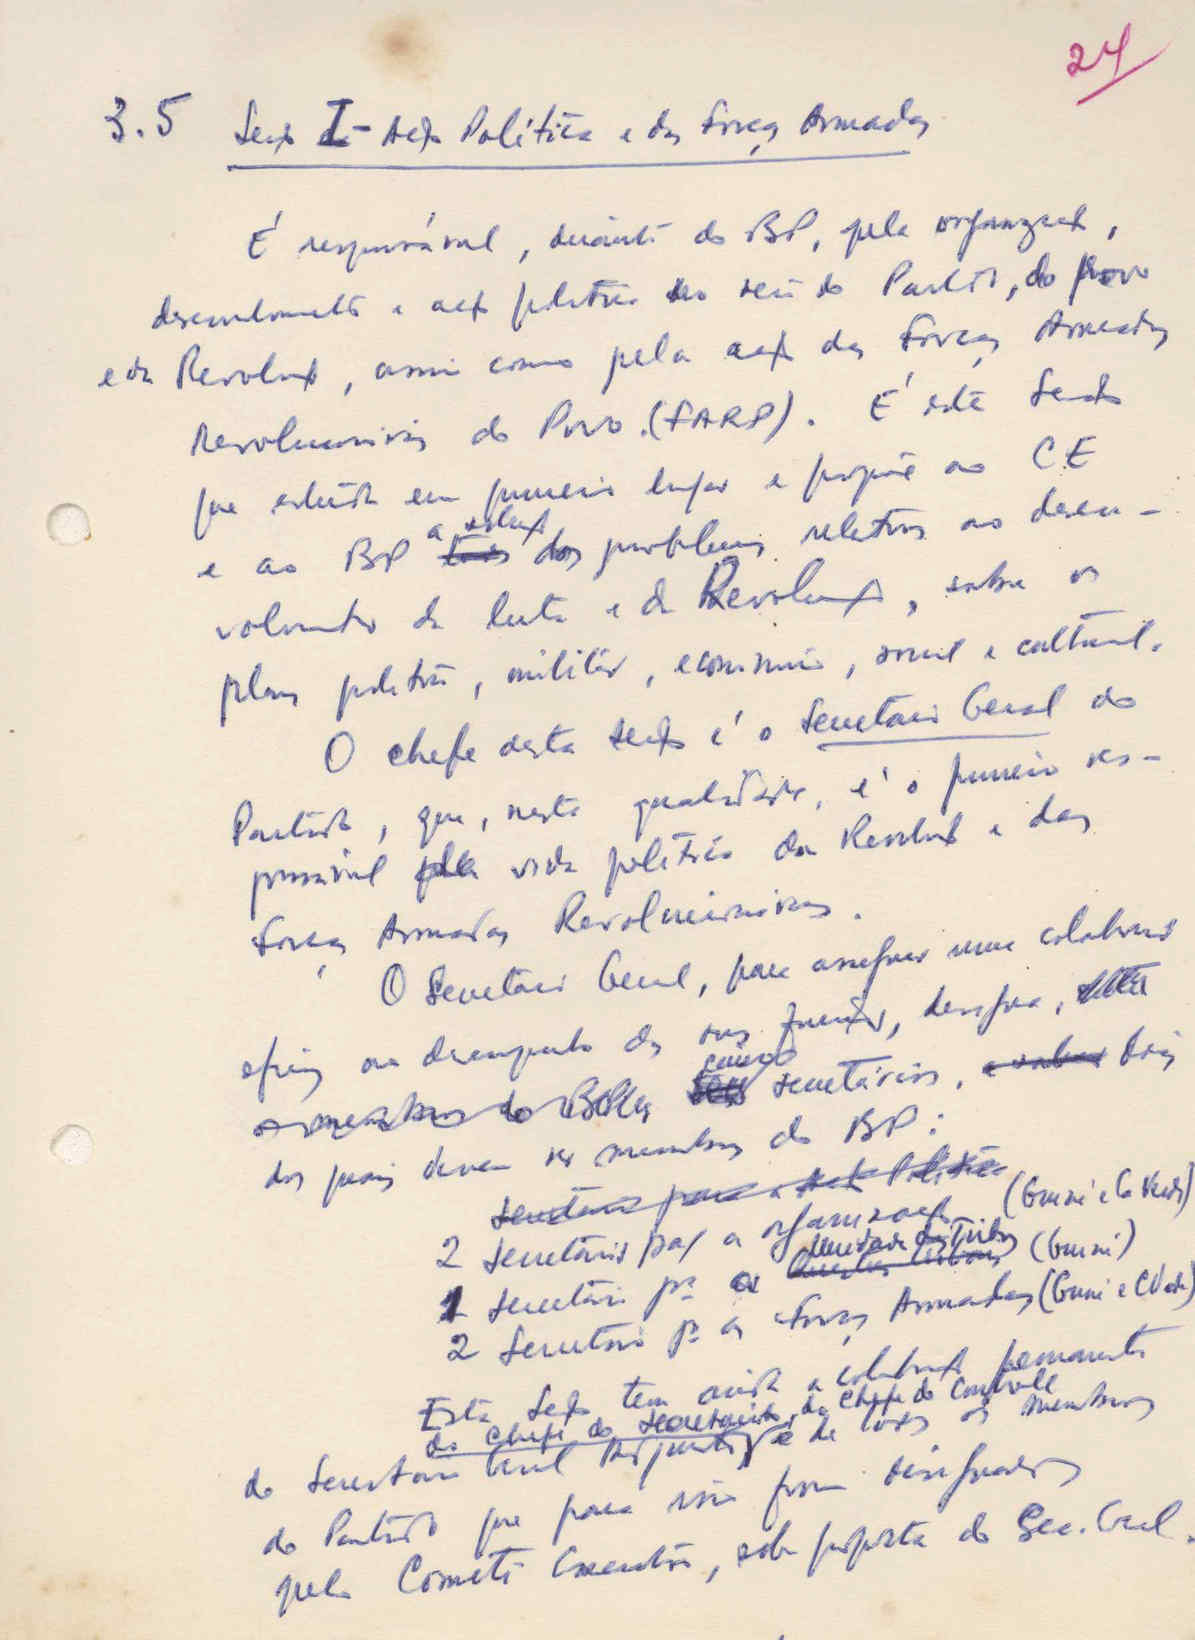 24
3.5 Secção I - Acção Política e das Forças Armadas
É responsável, diante do BP, pela organização,
desenvolvimento e acção política no seio do Partido, do povo
e da Revolução, assim como pela acção das Forças Armadas
Revolucionárias do Povo (FARP). É esta Secção
que estuda em primeiro lugar e propõe ao CE
e ao BP a solução dos problemas relativos ao desen-
volvimento da luta e da Revolução, sobre os
planos político, militar, económico, social e cultural.
O chefe desta secção é o Secretário Geral do
Partido, que, nesta qualidade, é o primeiro res-
ponsável pela vida política da Revolução e das
Forças Armadas Revolucionárias.
O Secretário Geral, para assegurar uma colaboração
eficaz no desempenho das suas funções, designa,
os membros do BP cinco secretários, e saber dois
dos quais devem ser membros do BP:
Secretário para a Acção Política
2 Secretários para a organização (Guiné e Cabo Verde)
1 Secretário pª as questões tribais (Guiné)
2 Secretários pª as Forças Armadas (Guiné e CVerde)
Esta Secção tem ainda a colaboração permanente
do chefe do secretariado, do chefe do Controle
do Secretário Geral Adjunto e de todos os membros
do Partido que para isso forem designados
pelo Comité Executivo, sob proposta do Sec. Geral.